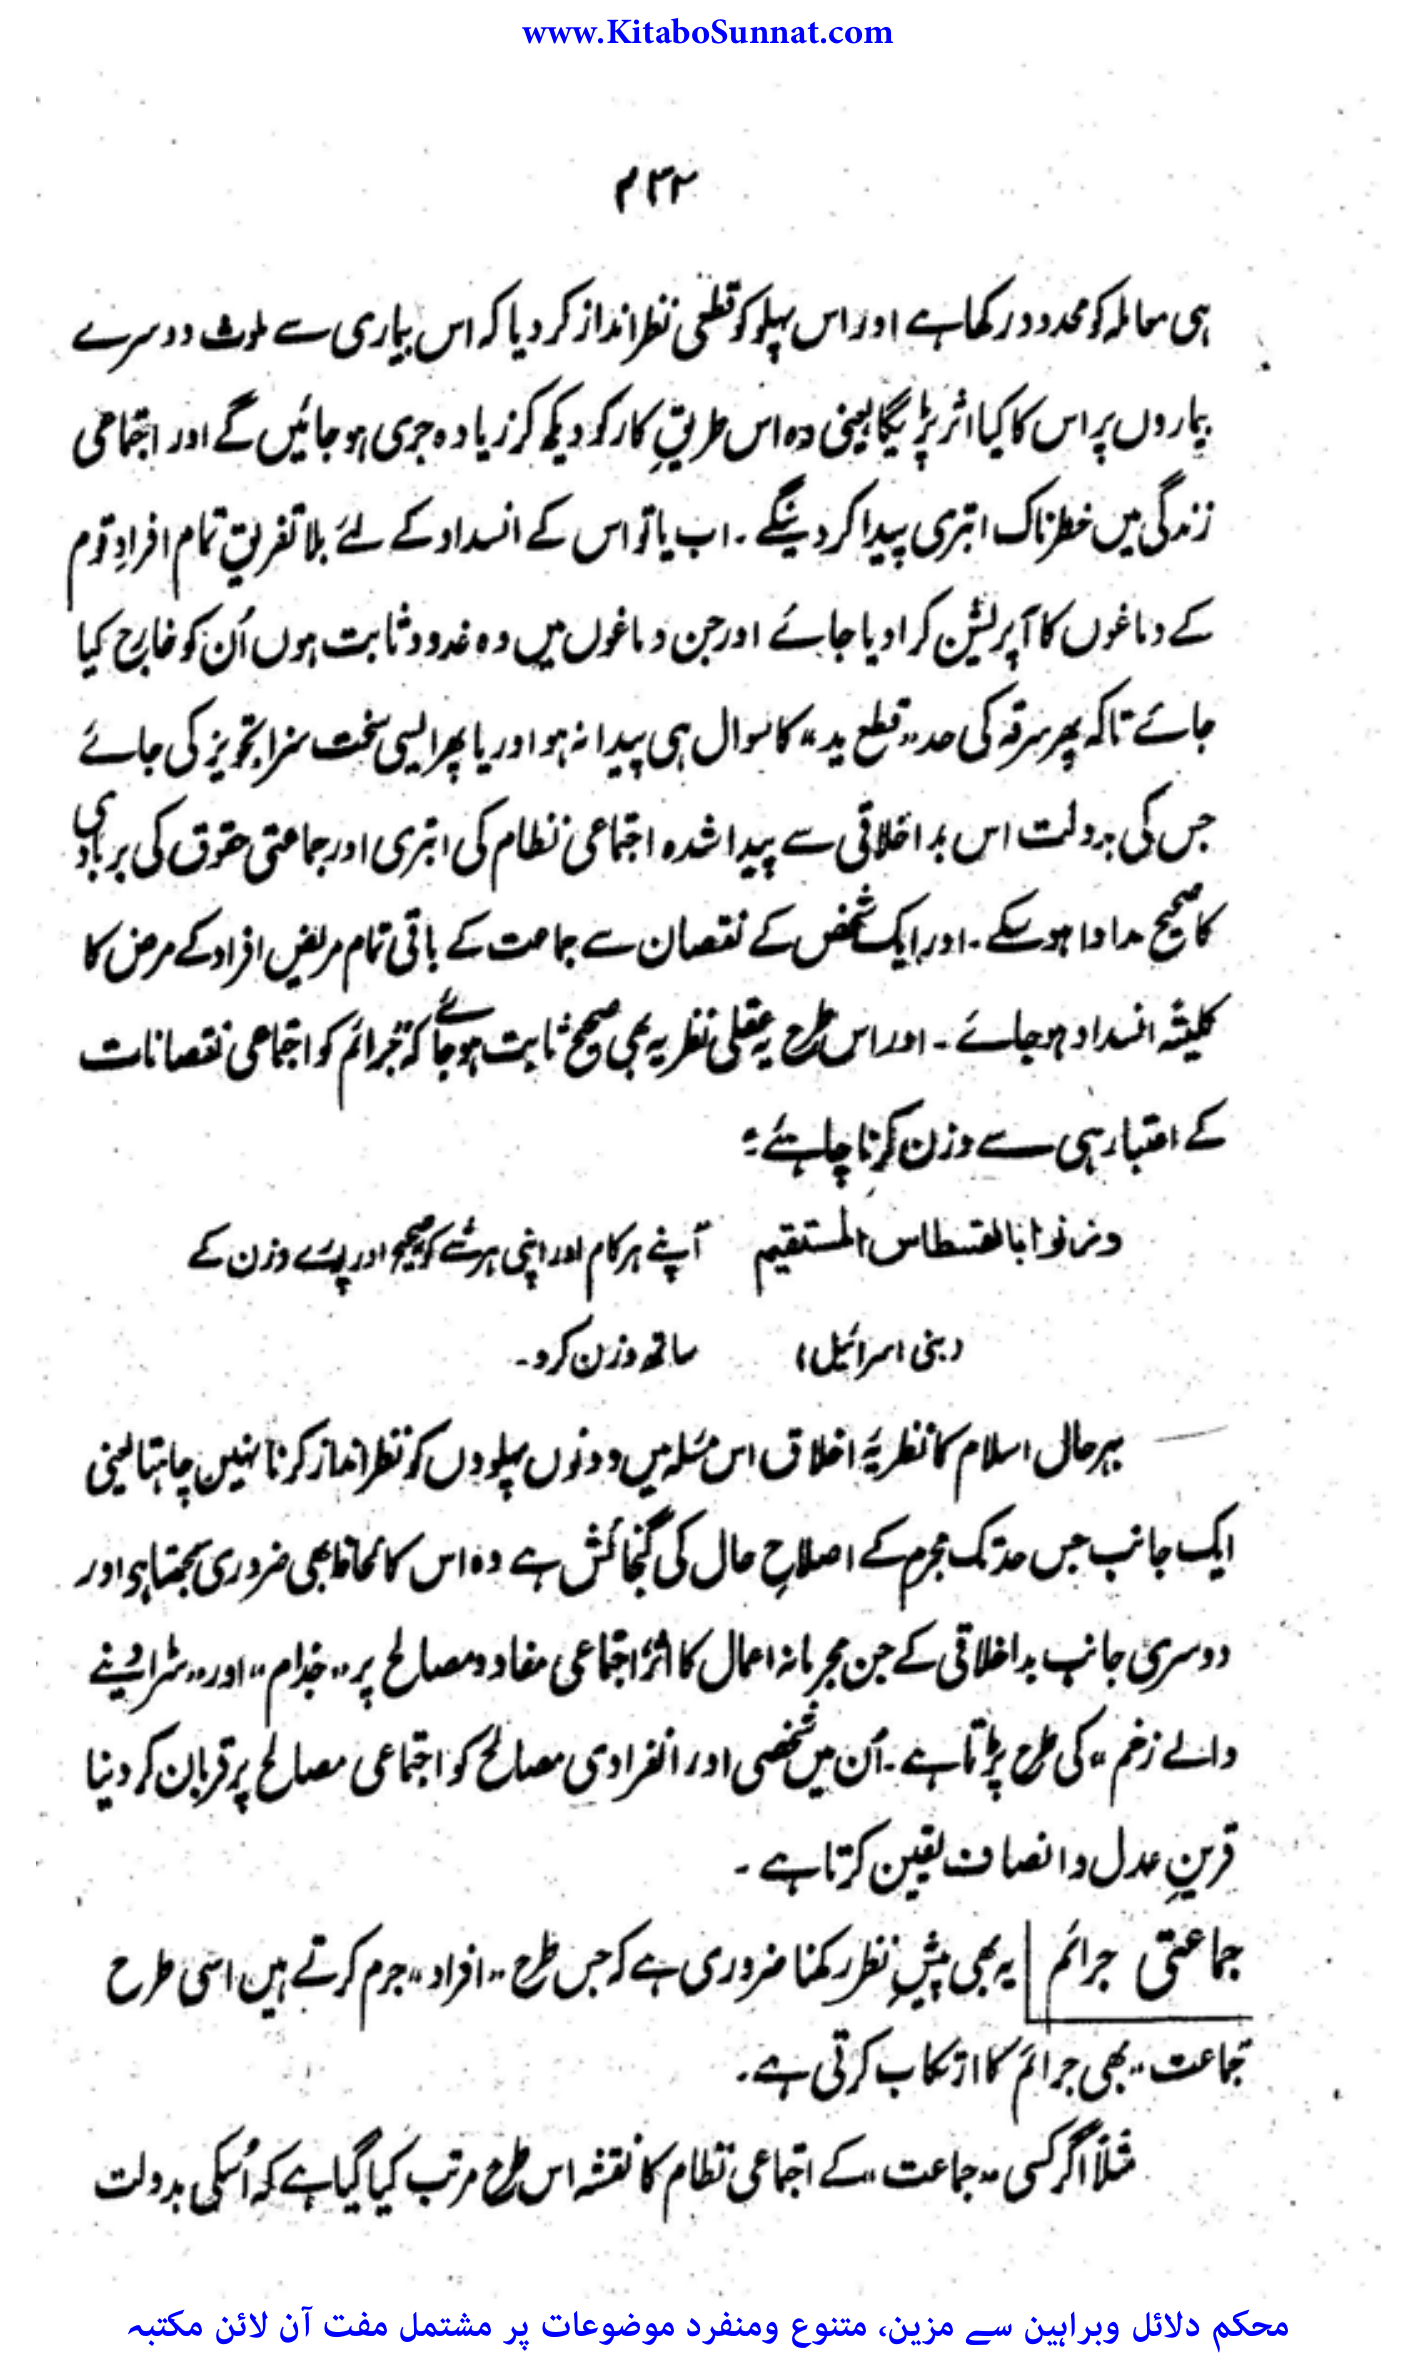 www.KitaboSunnat.com
۴۳۲
ہی معاملہ کو محدود رکھا ہے اور اس پہلو کو قطعی نظر انداز کر دیا کہ اس بیماری سے ملوث دوسرے
بیماروں پر اس کا کیا اثر پڑیگا یعنی وہ اس طریقِ کار کو دیکھ کر زیادہ جری ہو جائیں گے اور اجتماعی
زندگی میں خطرناک ابتری پیدا کر دینگے۔ اب یا تو اس کے انسداد کے لئے بلا تفریق تمام افرادِ قوم
کے دماغوں کا آپریشن کرا دیا جائے اور جن دماغوں میں وہ غدود ثابت ہوں اُن کو خارج کیا
جائے تاکہ پھر سرقہ کی حد "قطع ید" کا سوال ہی پیدا نہ ہو اور یا پھر ایسی سخت سزا تجویز کی جائے
جس کی بدولت اس بداخلاقی سے پیدا شدہ اجتماعی نظام کی ابتری اور جماعتی حقوق کی بربادی
کا صحیح مداوا ہو سکے۔ اور ایک شخص کے نقصان سے جماعت کے باقی تمام مریض افراد کے مرض کا
کلیتہً انسداد ہو جائے۔ اور اس طرح یہ عقلی نظریہ بھی صحیح ثابت ہو جائے کہ جرائم کو اجتماعی نقصانات
کے اعتبار ہی سے وزن کرنا چاہئے:
وزنوا بالقسطاس المستقیم اپنے ہر کام اور اپنی ہر شے کو صحیح اور پورے وزن کے
(بنی اسرائیل) ساتھ وزن کرو۔
بہرحال اسلام کا نظریۂ اخلاق اس مسئلہ میں دونوں پہلوؤں کو نظر انداز کرنا نہیں چاہتا یعنی
ایک جانب جس حد تک مجرم کے اصلاحِ حال کی گنجائش ہے وہ اس کا لحاظ بھی ضروری سمجھتا ہے اور
دوسری جانب بداخلاقی کے جن مجرمانہ اعمال کا اثر اجتماعی مفاد و مصالح پر "جذام" اور "سڑا دینے
والے زخم" کی طرح پڑتا ہے۔ اُن میں شخصی اور انفرادی مصالح کو اجتماعی مصالح پر قربان کر دینا
قرینِ عدل و انصاف یقین کرتا ہے۔
جماعتی جرائم یہ بھی پیشِ نظر رکھنا ضروری ہے کہ جس طرح "افراد" جرم کرتے ہیں اسی طرح
جماعت" بھی جرائم کا ارتکاب کرتی ہے۔
مثلاً اگر کسی "جماعت" کے اجتماعی نظام کا نقشہ اس طرح مرتب کیا گیا ہے کہ اُسکی بدولت
محکم دلائل وبراہین سے مزین، متنوع ومنفرد موضوعات پر مشتمل مفت آن لائن مکتبہ